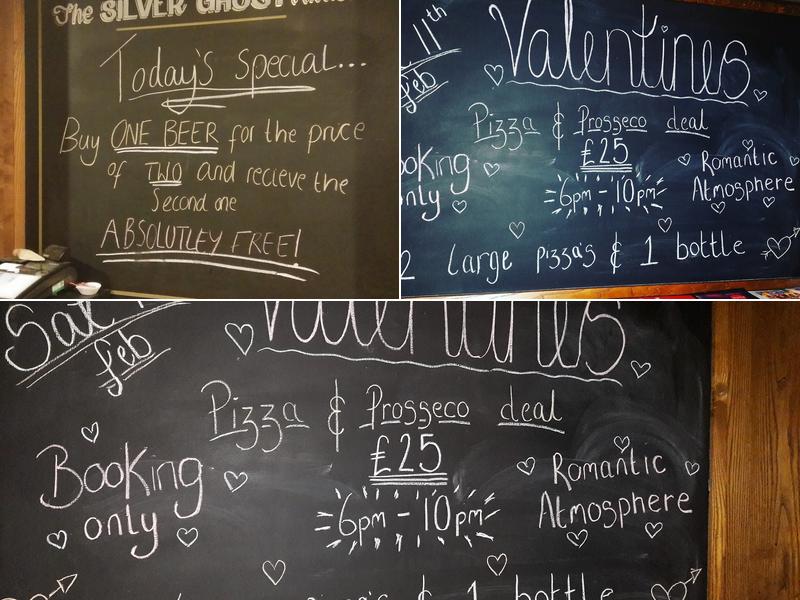 The SILVER GHOST
Today's Special...
Buy ONE BEER for the price
of TWO and recieve the
Second one
ABSOLUTLEY FREE!
11th
feb
Valentines
Pizza & Prosseco deal
£25
6pm - 10pm
ooking
nly
Romantic
Atmosphere
2 large pizza's & 1 bottle
Sat
feb
Valentines
Pizza & Prosseco deal
£25
6pm - 10pm
Booking
only
Romantic
Atmosphere
& 1 bottle